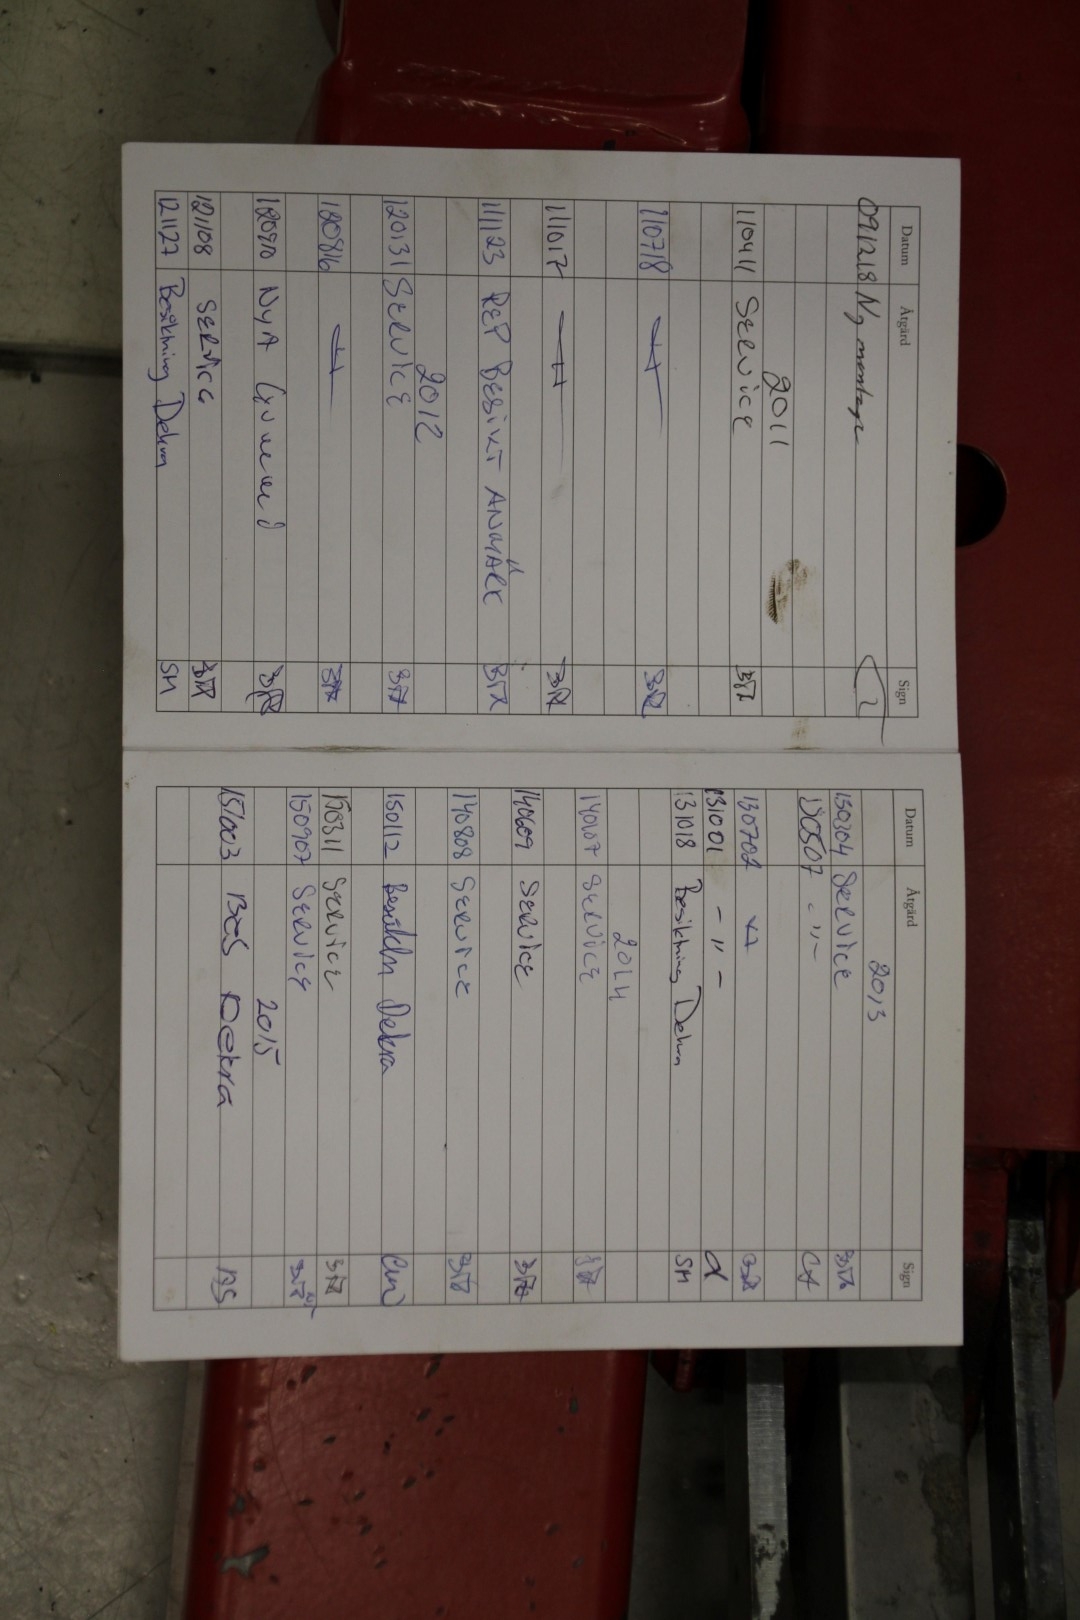 Datum Åtgärd Sign
091218 Ny montage
2011
110411 SERVICE
110718 -〃-
111017 -〃-
111123 REP BESIKT ANMÄRK
2012
120131 SERVICE
120816 -〃-
NYA
121108 SERVICE
121127 Besiktning Dekra SM
Datum Åtgärd Sign
2013
130304 SERVICE
130507 -〃-
130702 -〃-
131001 -〃-
131018 Besiktning Dekra SM
2014
140107 SERVICE
140609 SERVICE
140808 SERVICE
150112 Dekra
150311 SERVICE
150907 SERVICE
2015
151003 BES Dekra